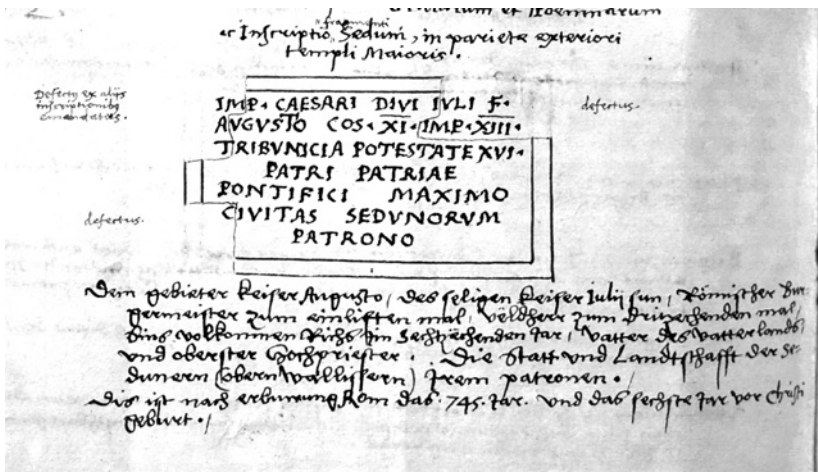 et Inscriptio fragmenti Seduni, in pariete exteriori
templi Maioris.
Defectus ex alijs
inscriptionibus
emendatus.
defectus.
IMP. CAESARI DIVI IVLI F.
AVGVSTO COS. XI. IMP. XIII.
TRIBVNICIA POTESTATE XVI.
PATRI PATRIAE
PONTIFICI MAXIMO
CIVITAS SEDVNORVM
PATRONO
defectus.
Dem gebieter keiser Augusto / des seligen keiser Iulij sun / Römischer Bur
germeister zum einlifften mal / veldherr zum drizechenden mal /
sins volkommen Richs im Sechzechenden Jar / vatter des vatterlands /
und oberster Hochpriester. Die Statt und Landtschafft der Se
dunern (obern Wallissern) Jrem patronen. /
Dis ist nach erbuwung Rom das. 745. Jar. und das sechste Jar vor Christi
geburt. /